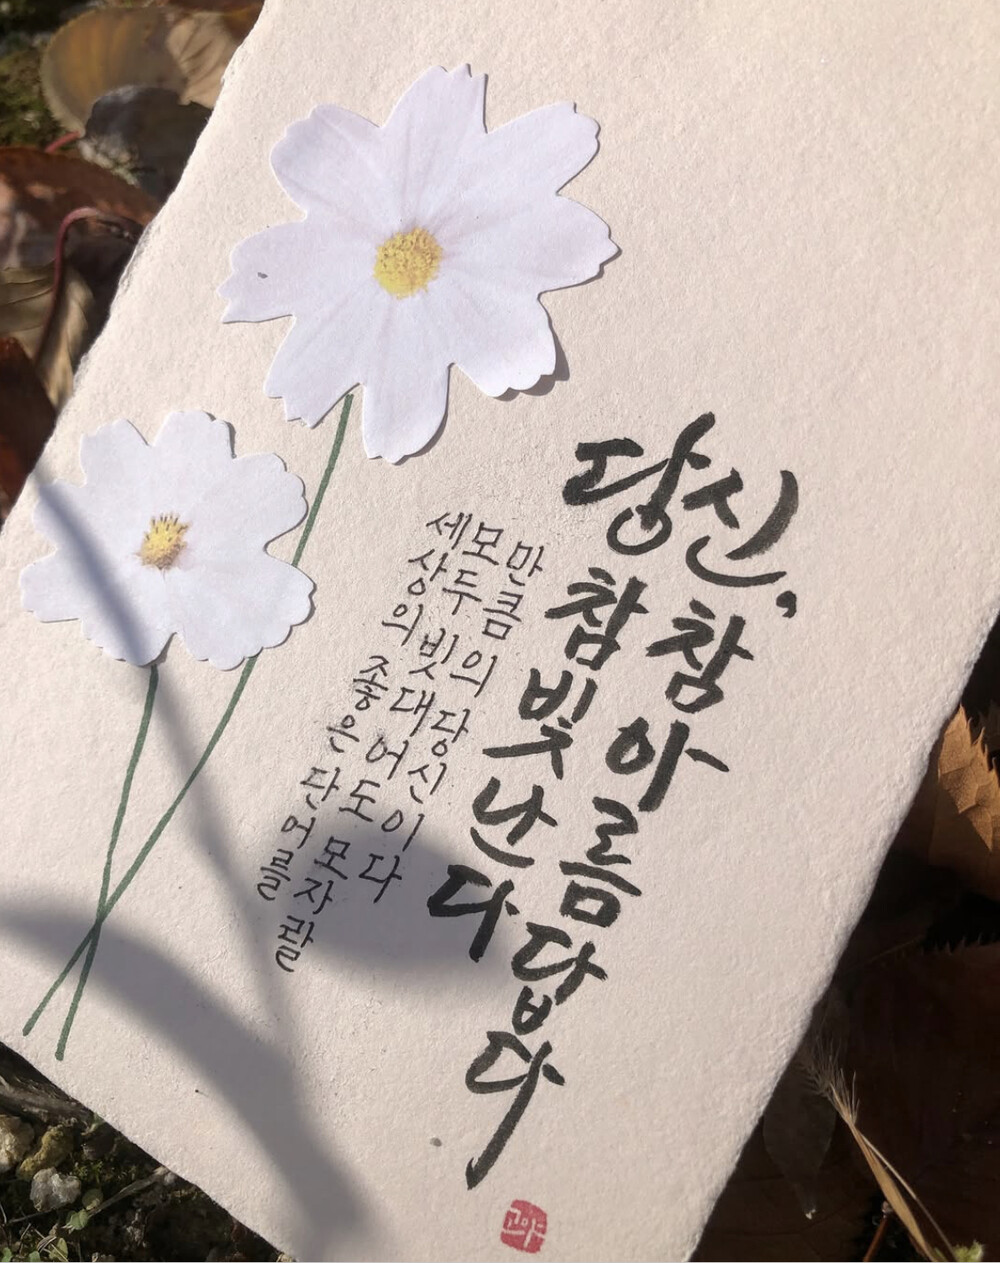 당신,
참 빛난다
참 아름답다
세상의 좋은 단어를
모두 빗대어도 모자랄
만큼의 당신이다